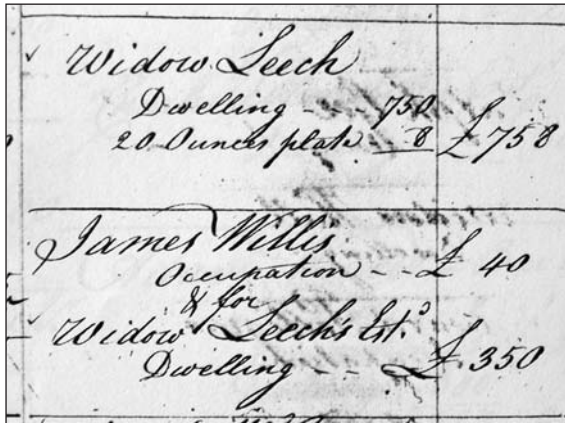 Widow Leech
Dwelling -- 750
20 Ounces plate -- 8 £ 758
James Willis
Occupation -- £ 40
& for
Widow Leech's Est.ᵈ
Dwelling -- £ 350